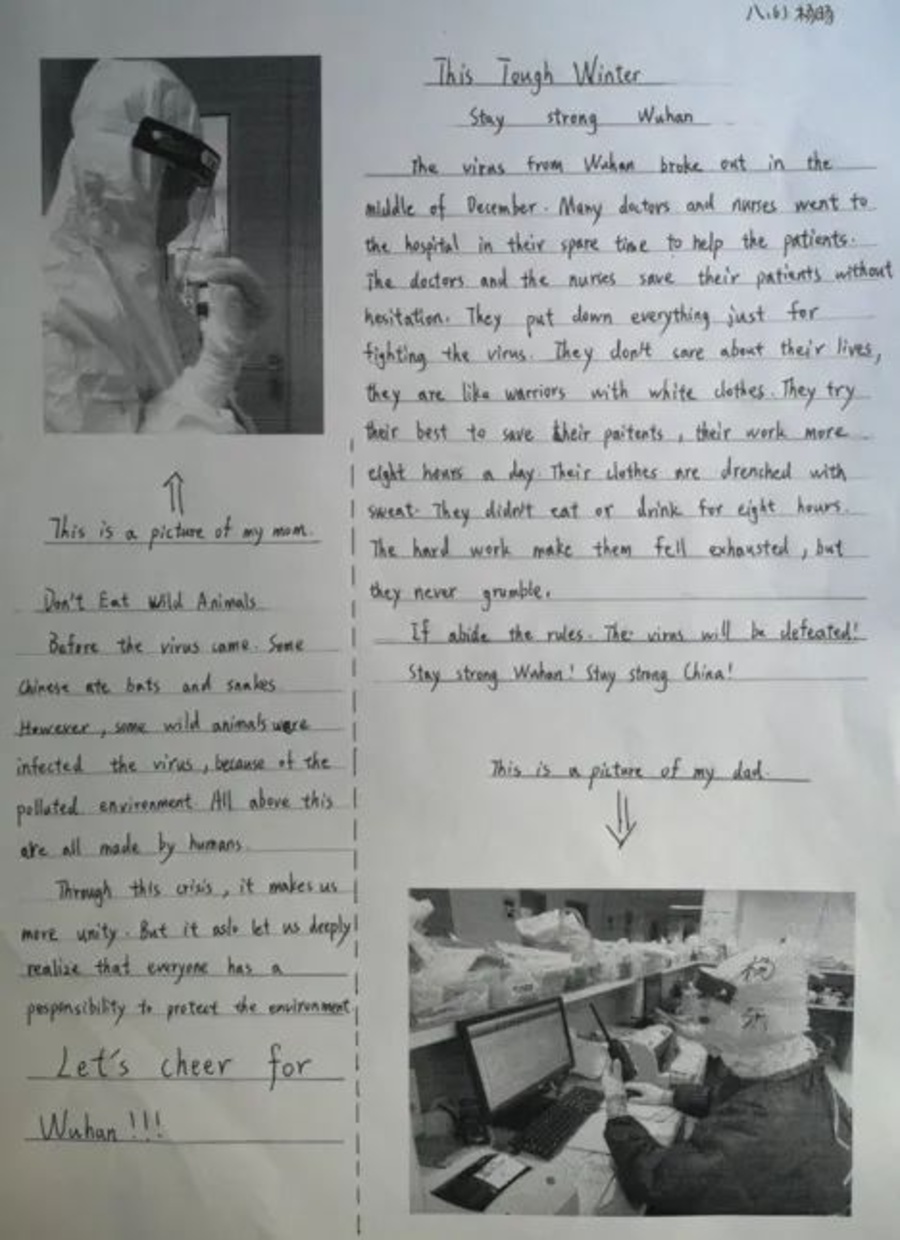 八.(6) 杨旸
This Tough Winter
Stay strong Wuhan
The virus from Wuhan broke out in the
middle of December. Many doctors and nurses went to
the hospital in their spare time to help the patients.
The doctors and the nurses save their patients without
hesitation. They put down everything just for
fighting the virus. They don't care about their lives,
they are like warriors with white clothes. They try
their best to save their paitents, their work more
eight hours a day. Their clothes are drenched with
sweat. They didn't eat or drink for eight hours.
The hard work make them fell exhausted, but
they never grumble.
If abide the rules. The virus will be defeated!
Stay strong Wuhan! Stay strong China!
This is a picture of my dad.
This is a picture of my mom.
Don't Eat Wild Animals
Before the virus came. Some
Chinese ate bats and snakes
However, some wild animals were
infected the virus, because of the
polluted environment. All above this
are all made by humans.
Through this crisis, it makes us
more unity. But it aslo let us deeply
realize that everyone has a
responsibility to protect the environment
Let's cheer for
Wuhan!!!